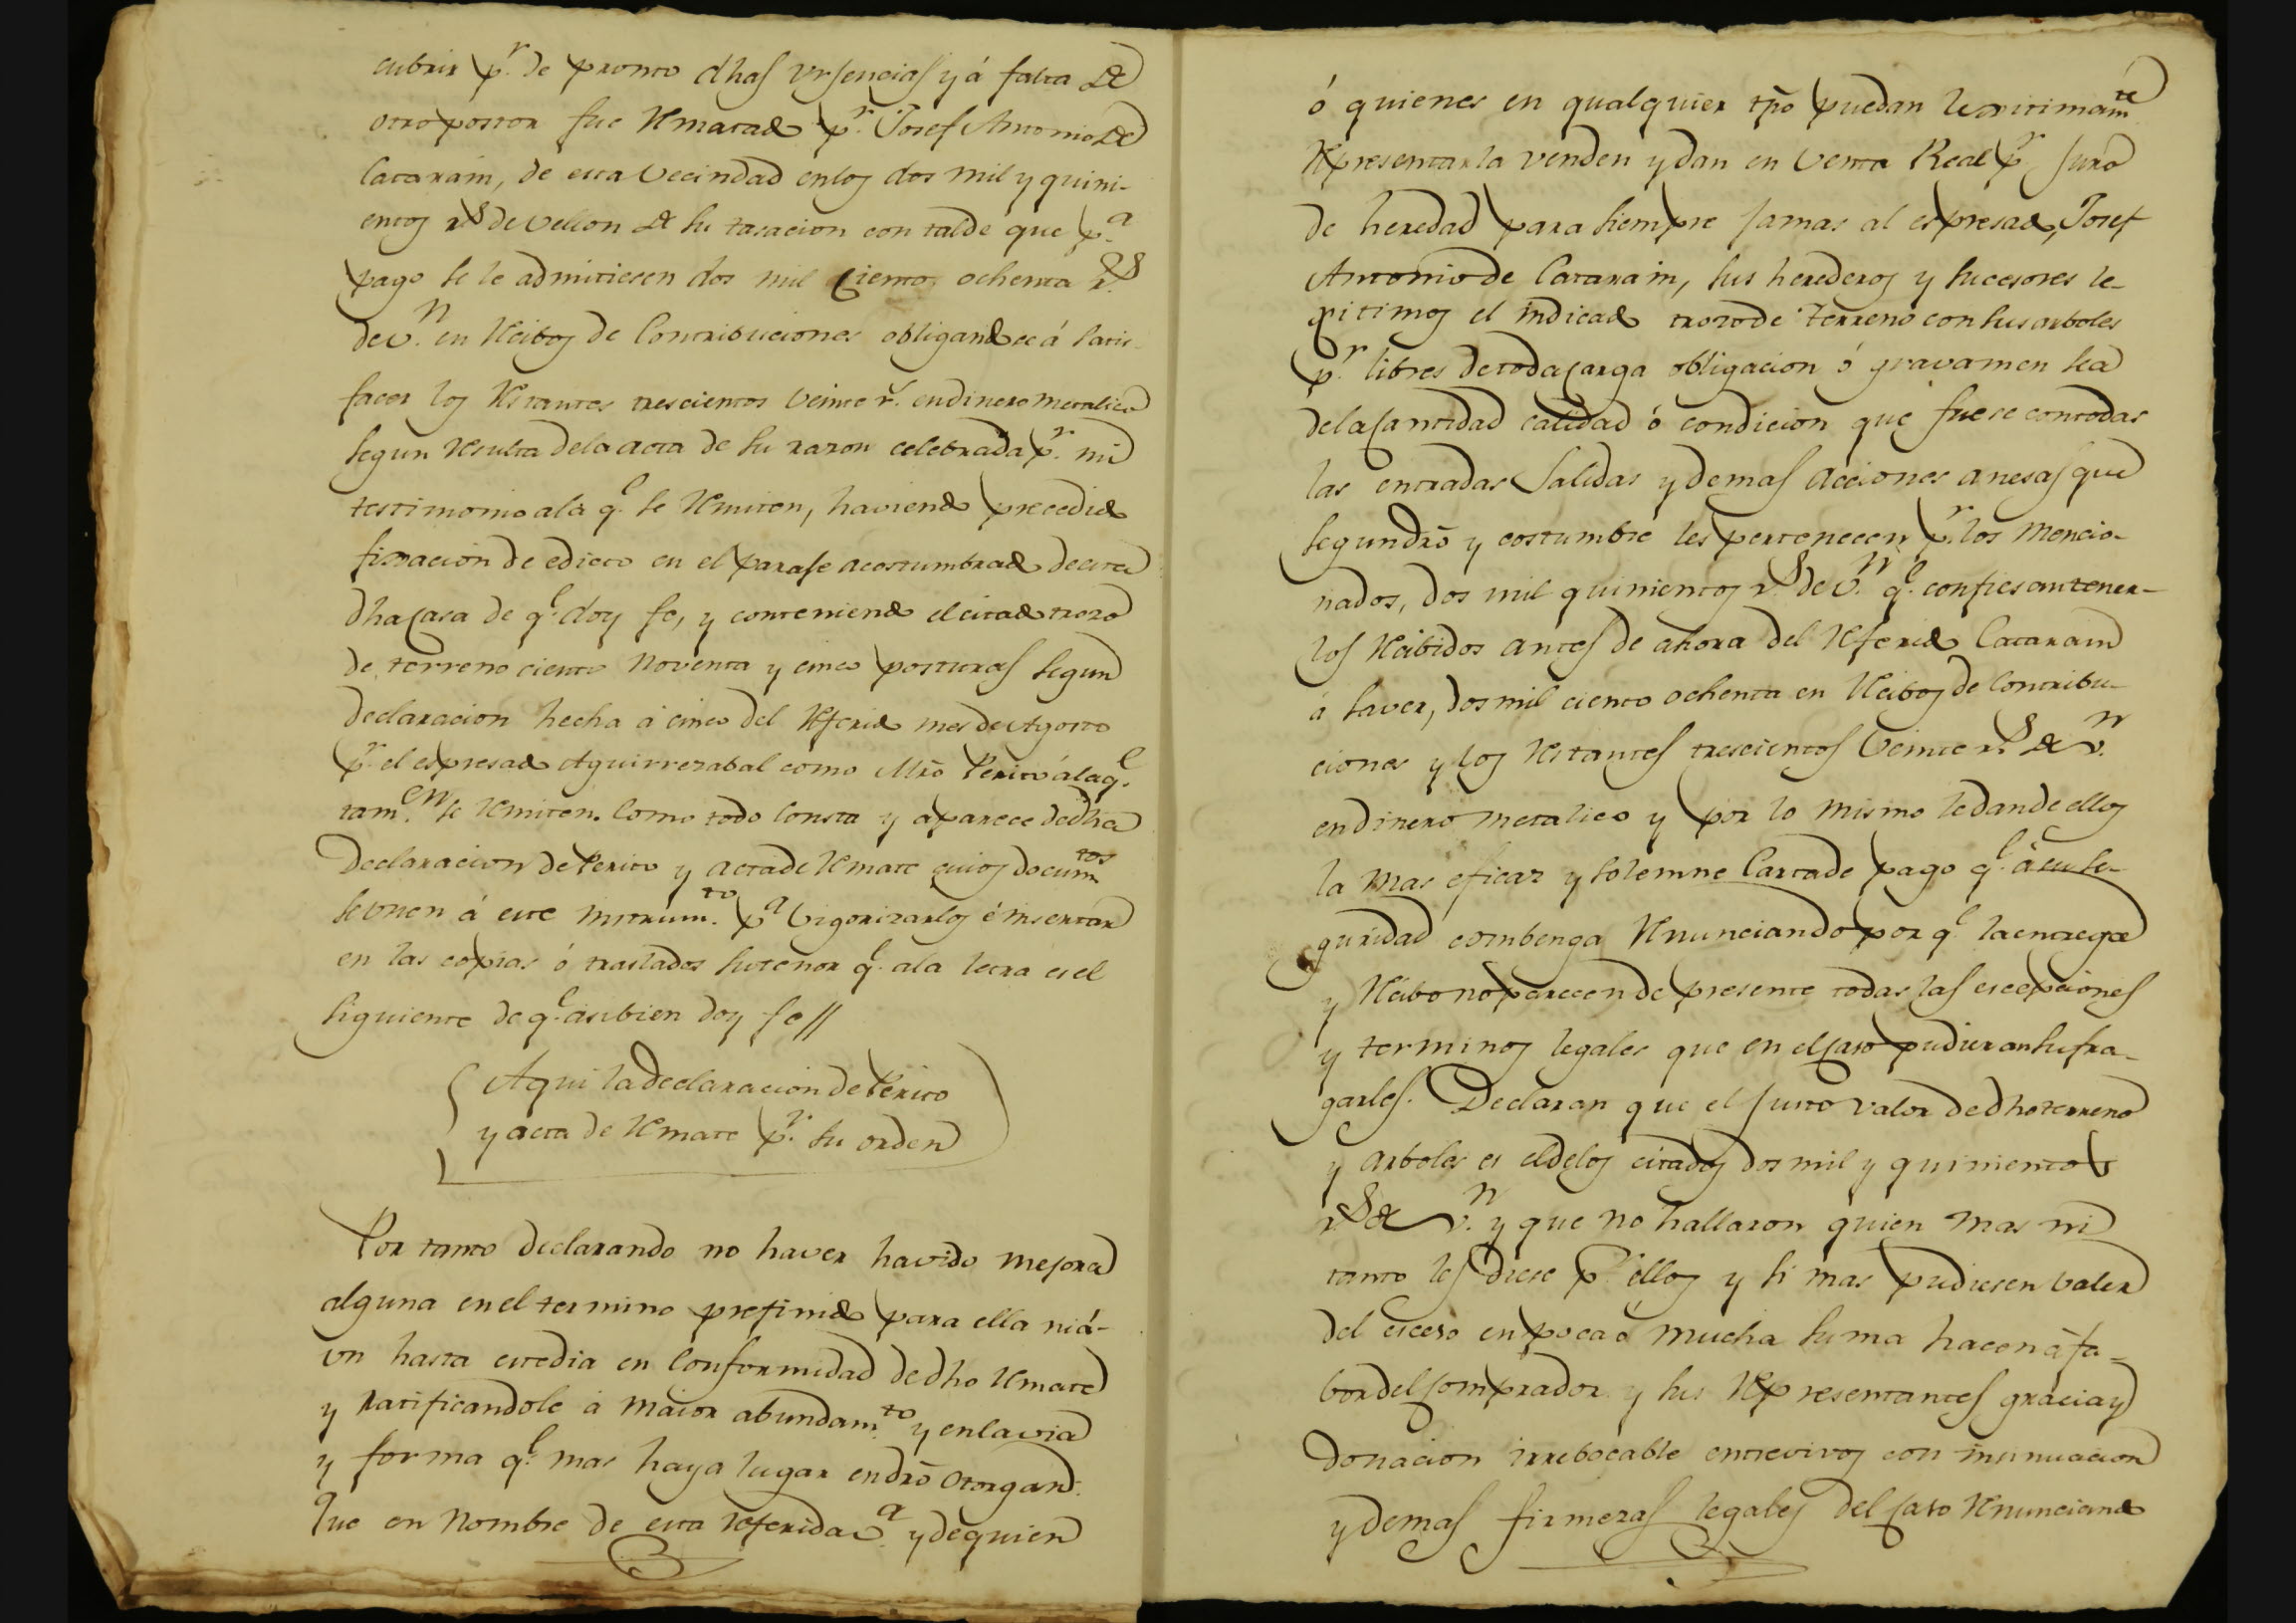 cubrir p.r de pronto dhas Urjencias y á falta de
otro postor fue rematado p.r Josef Antonio de
Catarain, de esta Vecindad en los dos mil y quini-
entos r.s de vellon de su tasacion con tal de que p.a
pago se le admitiesen dos mil ciento ochenta r.s
de v.n en recibos de Contribuciones obligandose á satis-
facer los restantes trescientos veinte r.s en dinero metalico
segun resulta de la acta de su razon celebrada p.r mi
testimonio a la q.e se remiten, haviendo precedido
fixacion de edicto en el paraje acostumbrado de esta
dha Casa de q.e doy fe, y conteniendo el citado trozo
de terreno ciento noventa y cinco posturas segun
declaracion hecha á cinco del referido mes de Agosto
p.r el espresado Aguirrezabal como Mro Perito á la q.e
tam.en se remiten. Como todo Consta y aparece de dha
Declaracion de Perito y acta de remate cuios docum.tos
se unen á este instrum.to p.a vigorizarlos é insertar
en las copias ó traslados su tenor q.e a la letra es el
siguiente de q.e asi bien doy fe //
Aqui la declaracion de Perito
y acta de remate p.r su orden
Por tanto declarando no haver havido mejora
alguna en el termino prefinido para ella ni á-
un hasta este dia en Conformidad de dho remate
y ratificandole á maior abundam.to y en la via
y forma q.e mas haya lugar en dro Otorgan:
Que en Nombre de esta referida v.a y de quien
ó quienes en qualquier tpo puedan lexitimam.te
representarla venden y dan en Venta Real p.r Juro
de heredad para siempre Jamas al espresado, Josef
Antonio de Catarain, sus herederos y sucesores le-
gitimos el indicado trozo de terreno con sus arboles
p.r libres de toda carga obligacion ó gravamen sea
de la Cantidad calidad ó condicion que fuese con todas
las entradas Salidas y demas acciones anesas que
segun dro y costumbre les pertenecen p.r los mencio-
nados, dos mil quinientos r.s de v.n q.e confiesan tener-
los recibidos antes de ahora del referido Catarain
á saver, dos mil ciento ochenta en recibos de Contribu-
ciones y los restantes trescientos veinte r.s de v.n
en dinero metalico y por lo mismo le dan de ellos
la mas eficaz y solemne Carta de pago q.e á su se-
guridad combenga renunciando por q.e la entrega
y recibo no parecen de presente todas las escepciones
y terminos legales que en el Caso pudieran sufra-
garles. Declaran que el Justo valor de dho terreno
y arboles es el de los citados dos mil y quinientos
r.s de v.n y que no hallaron quien mas ni
tanto les diese p.r ellos y si mas pudiesen valer
del esceso en poca ó mucha suma hacen á fa-
bor del Comprador y sus representantes gracia y
Donacion irrebocable entre vivos con insinuacion
y demas firmezas legales del Caso renunciando